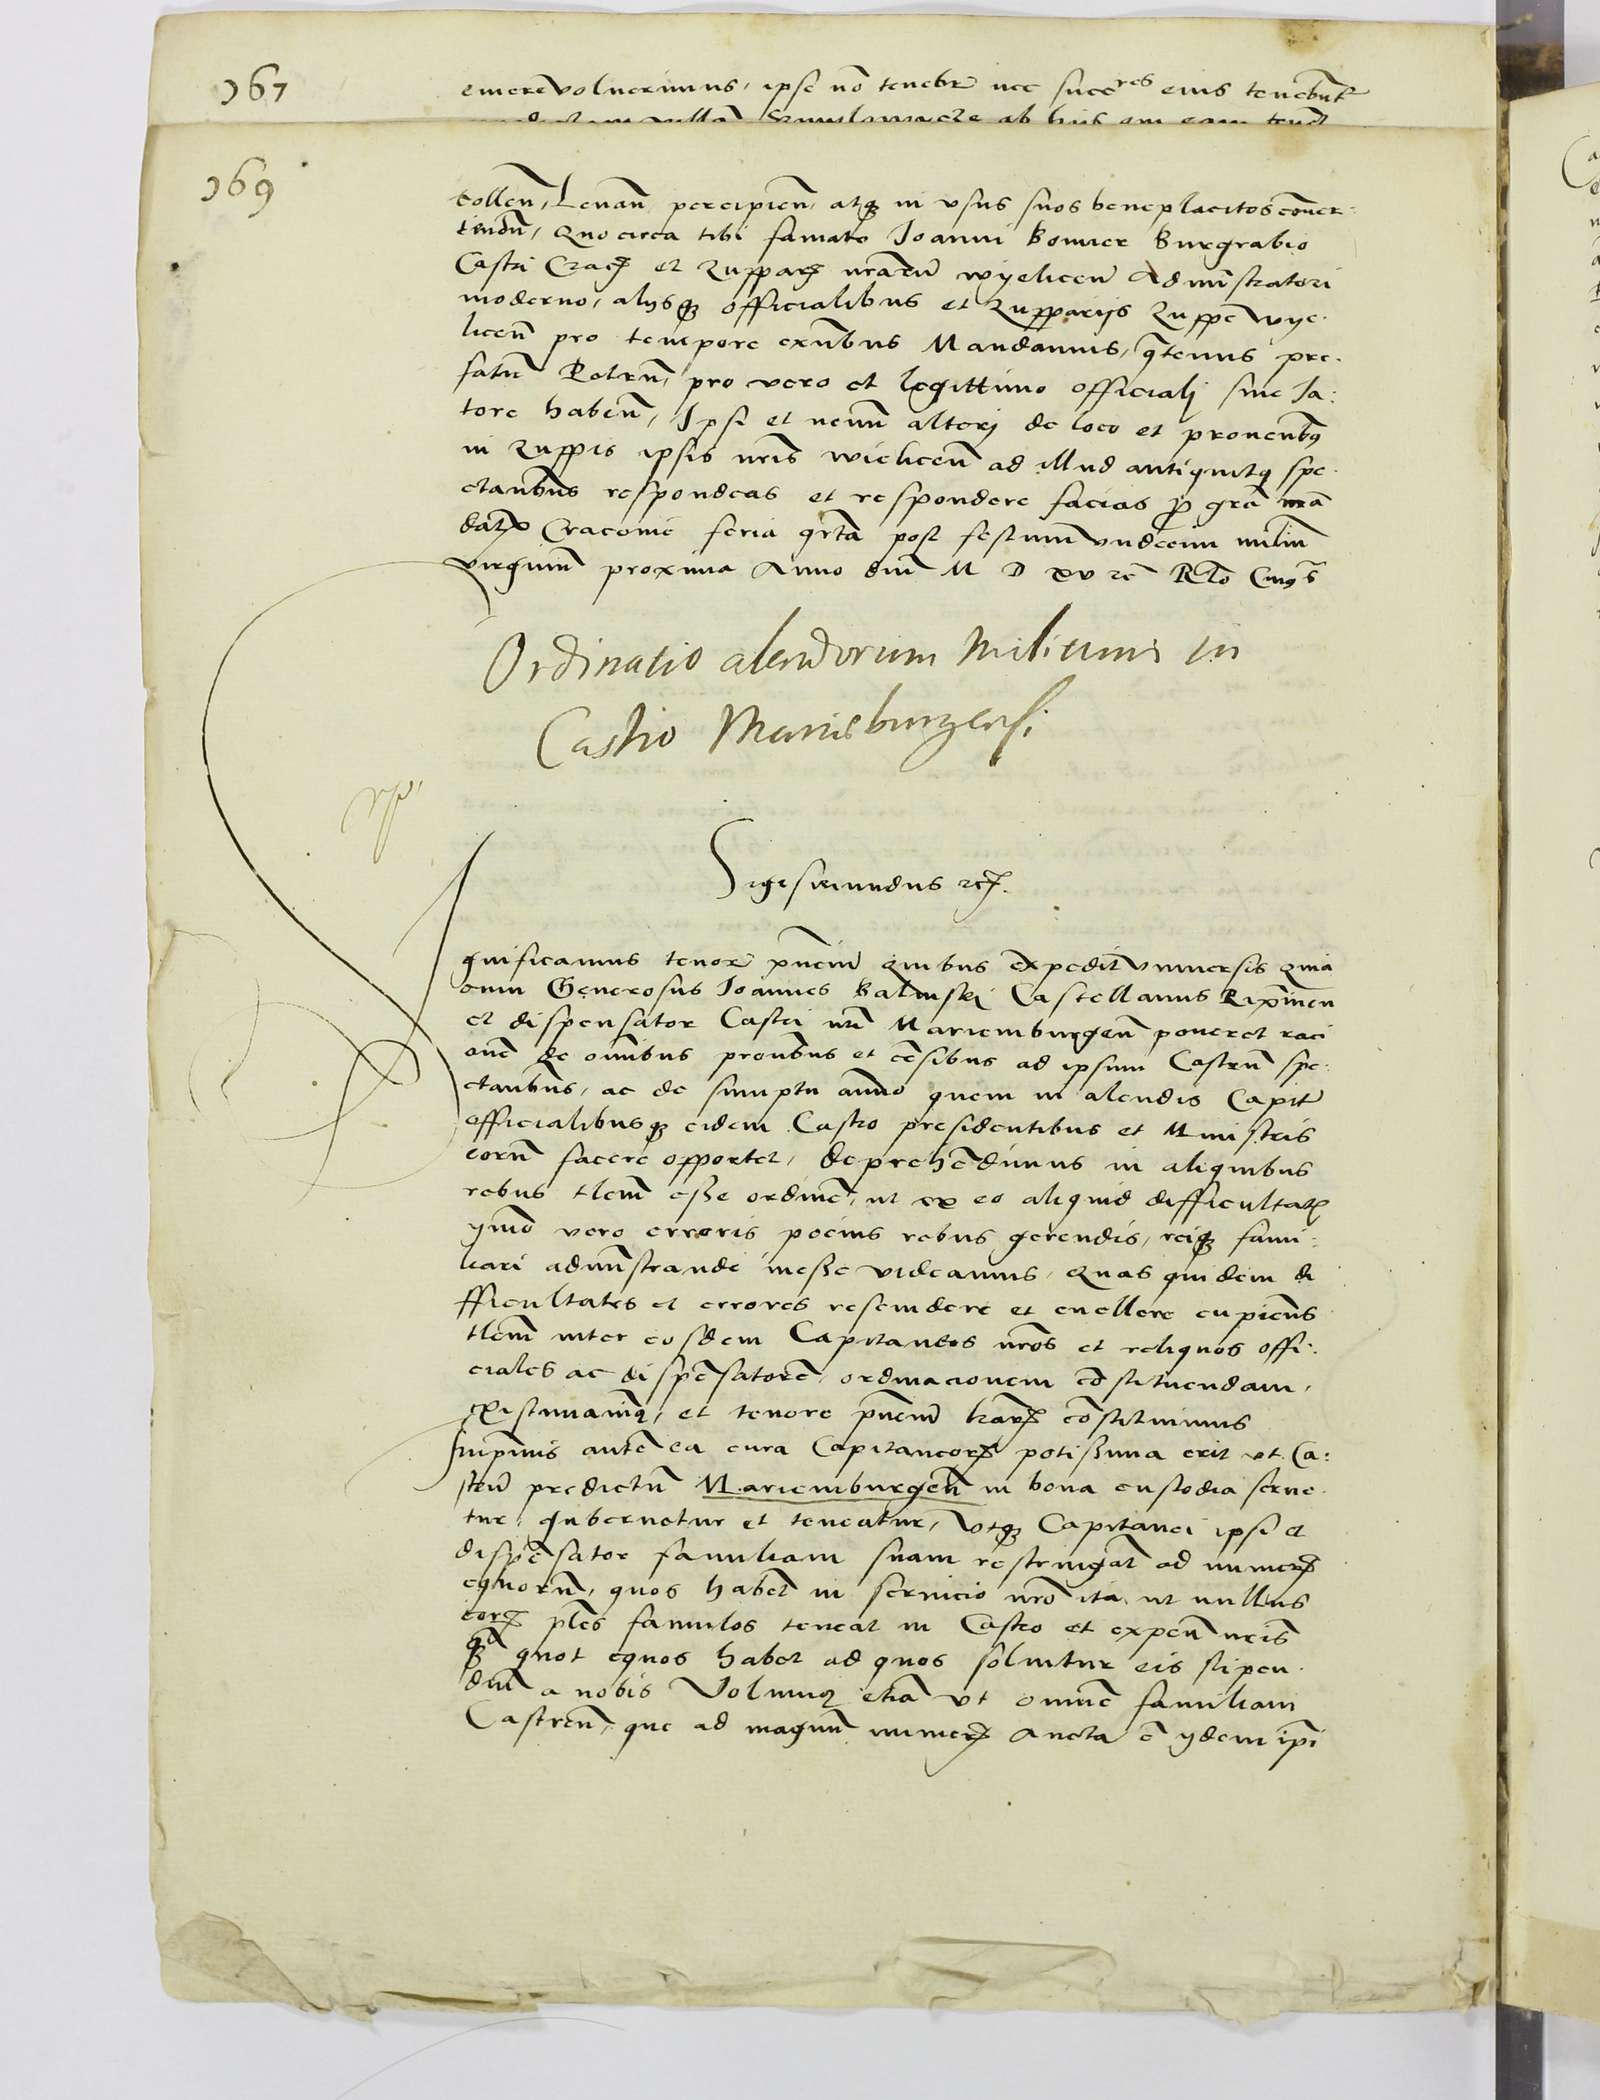 367
emere voluerimus, ipse nō tenebr̄ nec succ͛res eius tenebūt͛
369
tollen̄, Levan̄ percipien̄, atq; in vsus suos beneplacitos cōuer-
tendū, Quocirca tibi famato Joanni Bonner Burgrabio
Castri Crac̄ et Zuppar̄ nrārū wyelicen̄ Adminstratori
moderno, alijsq; officialibus et Zupparijs Zuppe wye-
licen̄ pro tempore exn̄tibus Mandamus, q̄tenus pre-
fatū Petrū, pro vero et legittimo officiali siue Ja-
tore haben̄, Ipsi et nemī alteri de loco et prouentib9
in Zuppis ipsis nrīs wielicen̄ ad illud antiquitq; spe-
ctantibus respondeas et respondere facias p̄ grā nrā
datū Cracouie feria qr̄ta post festum vndecim milliū
virginū proxima Anno dnī M D xv rc̄ Rlō Cuq̄s
Ordinatio alendorum Militum in
Castro Marieburgensi
Sigismundus rc̄.
gnificamus tenore pn̄ciū Quibus expedit vniuersis Quia
cum Generosus Joannes Balinski Castellanus Ripinen̄
et dispensator Castri nrī Mariemburgen̄ poneret raci
onē de omībus prouētibus et cēsibus ad ipsum Castrū spe-
ctantibus, ac de sumptu anno quem in alendis Capit̄
officialibusq; eidem Castro presidentibus et Ministris
eorū facere opportet, deprehēdimus in aliquibus
rebus tlem̄ esse ordinē, ut ex eo aliquid difficultatis
ymo vero erroris pocius rebus gerendis, reiq; fami-
liari adminstrande inesse videamus, Quas quidem di
fficultates et errores rescindere et euellere cupien̄s
tlem̄ inter eosdem Capitaneos nrōs et reliquos offi-
ciales ac dispēsatorē, ordinacionem cōstituendam,
existimauimq;, et tenore pn̄ciū har̄ cōstituimus
Inprimis autē ea cura Capitaneor̄ potissima erit vt Ca-
strū predictū Mariemburgen̄ in bona custodia serue-
tur, gubernetur et teneatur, vtq; Capitanei ipsi et
dispēsator familiam suam restringāt ad numer̄
equorū, quos habēt in seruicio nrō ita, ut nullus
eor̄ plēs famulos teneat in Castro et expen̄ nrīs
q̄ quot equos habet ad quos soluitur eis stipen-
diū a nobis Volumq; etiā vt omnē familiam
Castren̄, que ad magnū numer̄ aucta ē ydem ip̄i